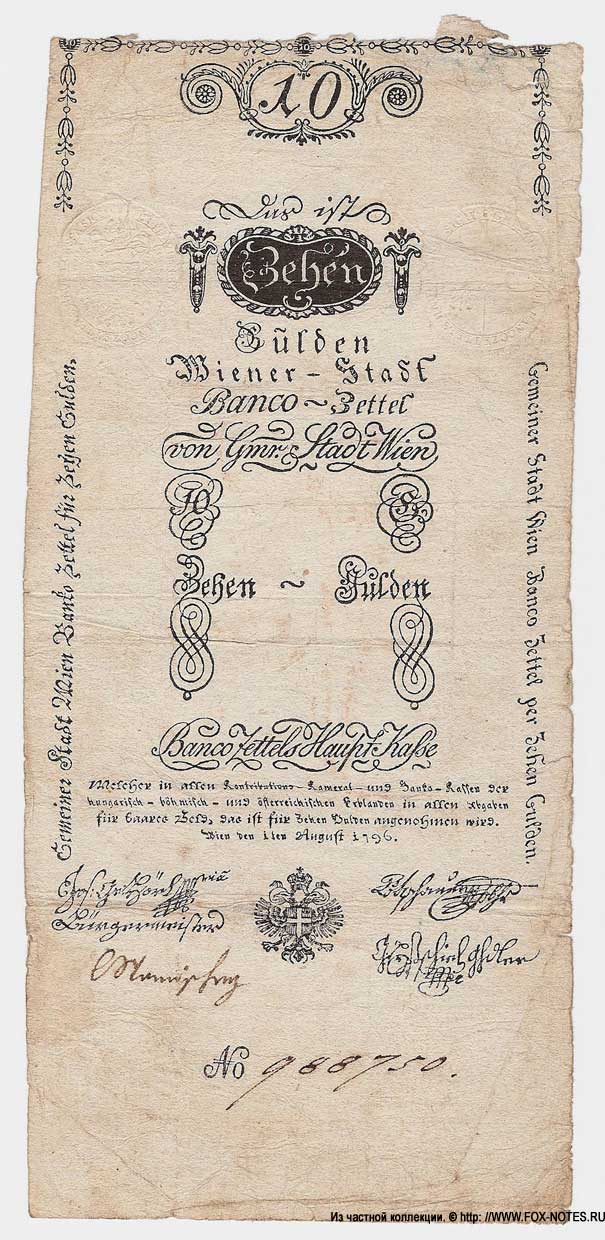 10
Das ist
Zehen
Gulden
Wiener-Stadt
Banco~Zettel
von Gmr. Stadt Wien
10 G.
Zehen ~ Gulden
Banco Zettels Haupt-Kasse
Welcher in allen Kontributions-Kameral-und Banko-Kassen der
hungarisch-böhmisch-und österreichischen Erblanden in allen Abgaben
für baares Geld, das ist für Zehen Gulden angenommen wird.
Wien den 1ten August 1796.
Gemeiner Stadt Wien Banko Zettel für Zehen Gulden.
Gemeiner Stadt Wien Banco Zettel per Zehen Gulden.
Bürgermeister
No 988750.
Из частной коллекции. © http: //WWW.FOX-NOTES.RU